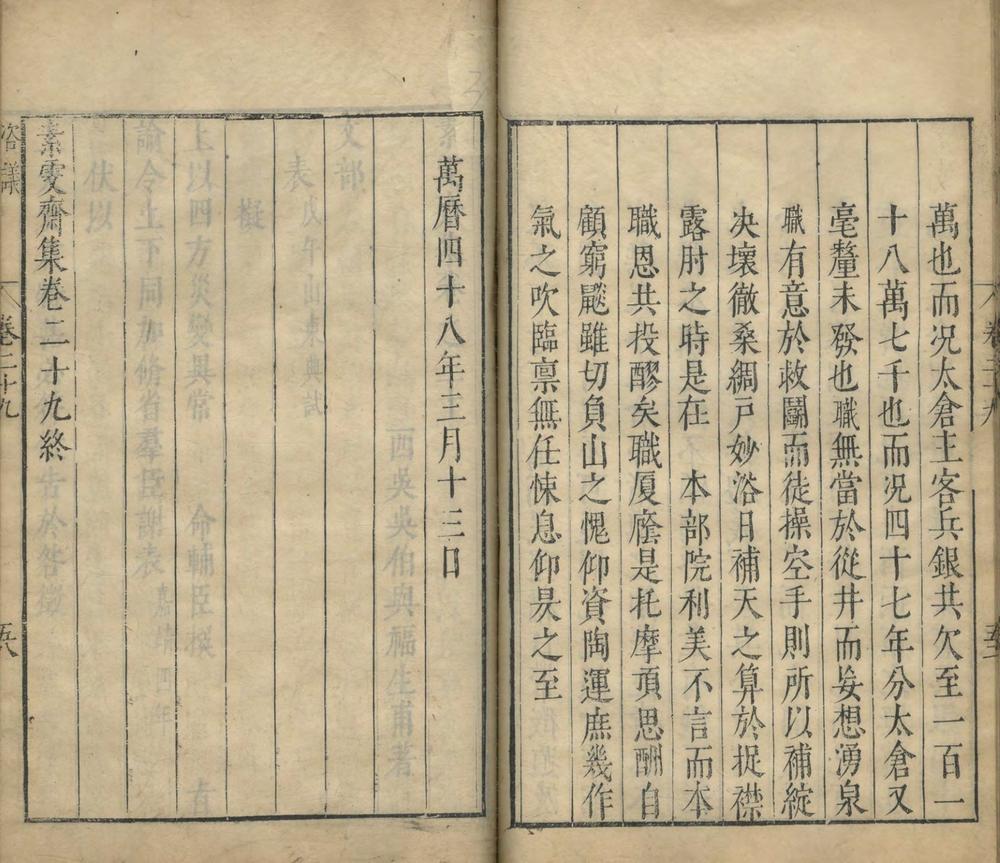 萬也而况太倉主客兵銀共欠至一百一
十八萬七千也而况四十七年分太倉又
毫釐未發也職無當於從井而妄想湧泉
職有意於救鬭而徒操空手則所以補綻
决壞徹桑綢戸妙浴日補天之算於捉襟
露肘之時是在　本部院利美不言而本
職恩共投醪矣職厦廕是托摩頂思酬自
顧窮鼮雖切負山之愧仰資陶運庶幾作
氣之吹臨禀無任悚息仰昃之至
萬曆四十八年三月十三日
素雯齋集卷二十九終
卷二十九
咨議
卷二十九